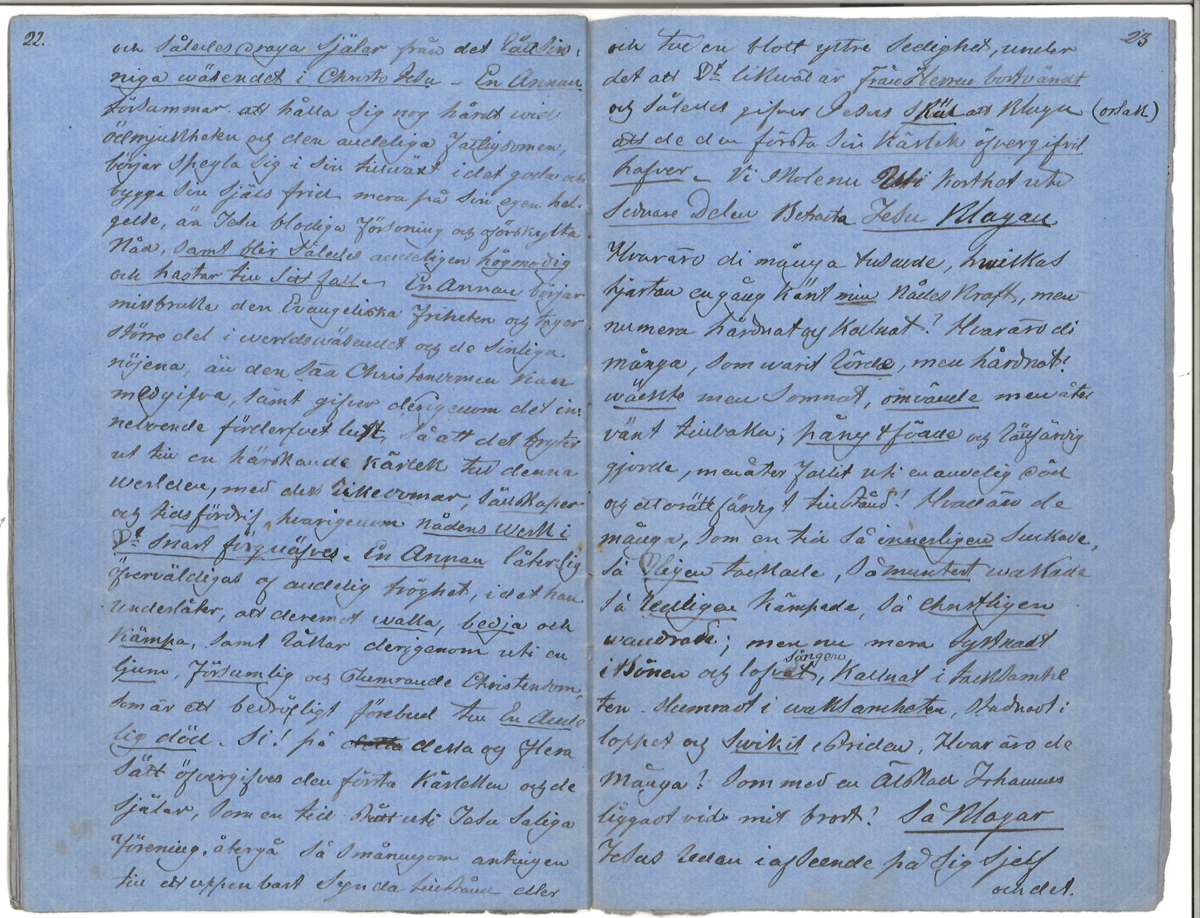 22.
och således draga själar från det Lättsin-
niga wäsendet i Christo Jesu – En Annan
försummar att hålla sig nog hårdt wid
ödmjukheten och den andeliga fattigdomen,
börjar spegla sig i sin tillwäxt i det goda och
bygga sin själs frid mera på sin egen hel-
gelse, än Jesu blodiga Försoning och förskyllta
Nåd, samt blir således andeligen högmodig
och hastar till sitt fall – En Annan börjar
missbruka den Evangeliska friheten och tager
större del i werldswäsendet och de sinliga
nöjena, än den Sãa Christendomen kan
medgifva, samt gifver derigenom det in-
neboende förderfvet luft, så att det bryter
ut till en härskande kärlek till denna
werlden, med dess Rikedomar, Sällskaper
och tidsfördrif, hvarigenom nådens werk i
Dt snart förqväfves. En Annan låter sig
öfverväldigas af andelig tröghet, i det han
underlåter, att deremot waka, bedja och
kämpa, samt råkar derigenom uti en
ljum, försumlig och slumrande Christendom,
som är ett bedröfligt förebud till En Ande-
lig död. Si! på detta dessa og flera
sätt öfvergifves den första kärleken och de
själar, som en tid stått uti Jesu Saliga
förening, återgå så småningom antingen
till ett uppenbart Synda tillstånd eller
23
och till en blott yttre Sedighet, under
det att Dt likwäl är från Herran bortvändt
och således gifver Jesus skäl att klaga (orsak)
att de den första sin kärlek öfvergifvit
hafver. Vi skolom uti korthet uti
sednare Delen Betrakta Jesu Klagan
Hvar äro di många tusende, hwilkas
hjertan en gång känt min nådes kraft, men
numera hårdnat og kallnat? Hvar äro di
många, som warit Rörde, men hårdnat?
wäckte men somnat, omvände men åter
vänt tillbaka; pånyttfödde og rättfärdig
gjorde, men åter fallit uti en andelig död
og ett orättfärdigt tillstånd? Hvar äro de
många, som en tid så innerligen suckade,
så ödligen tackade, så muntert wakade
så Redligen kämpade, så christligen
wandrade; men nu mera tystnadt
i Bönen och lofvet sången, kallnat i tacksamhe
ten. slumradt i waksamheten, stadnadt i
loppet og Swikit i striden, Hvar äro de
många? som med en älskad Johannes
liggadt vid mit bröst? Så Klagar
Jesus redan i afseende på sig sjelf
och det.